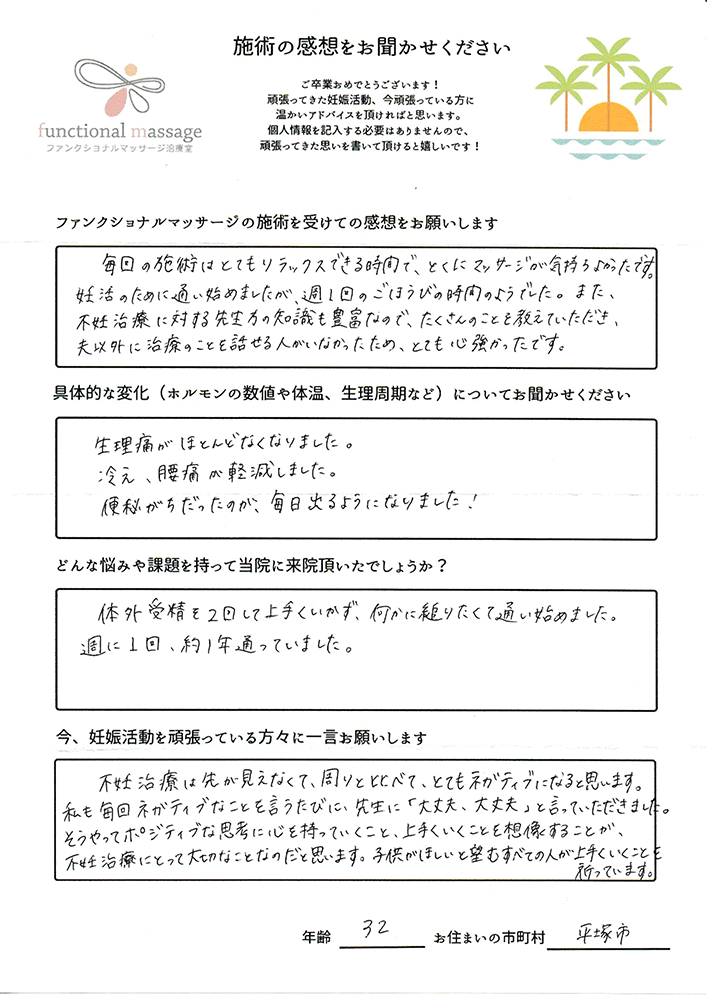 施術の感想をお聞かせください
functional massage
ファンクショナルマッサージ治療室
ご卒業おめでとうございます！
頑張ってきた妊娠活動、今頑張っている方に
温かいアドバイスを頂ければと思います。
個人情報を記入する必要はありませんので、
頑張ってきた思いを書いて頂けると嬉しいです！
ファンクショナルマッサージの施術を受けての感想をお願いします
毎回の施術はとてもリラックスできる時間で、とくにマッサージが気持ちよかったです。
妊活のために通い始めましたが、週1回のごほうびの時間のようでした。また、
不妊治療に対する先生方の知識も豊富なので、たくさんのことを教えていただき、
夫以外に治療のことを話せる人がいなかったため、とても心強かったです。
具体的な変化（ホルモンの数値や体温、生理周期など）についてお聞かせください
生理痛がほとんどなくなりました。
冷え、腰痛が軽減しました。
便秘がちだったのが、毎日出るようになりました！
どんな悩みや課題を持って当院に来院頂いたでしょうか？
体外受精を2回して上手くいかず、何かに縋りたくて通い始めました。
週に1回、約1年通っていました。
今、妊娠活動を頑張っている方々に一言お願いします
不妊治療は先が見えなくて、周りと比べて、とてもネガティブになると思います。
私も毎回ネガティブなことを言うたびに、先生に「大丈夫、大丈夫」と言っていただきました。
そうやってポジティブな思考に心を持っていくこと、上手くいくことを想像することが、
不妊治療にとって大切なことなのだと思います。子供がほしいと望むすべての人が上手くいくことを
祈っています。
年齢 32 お住まいの市町村 平塚市